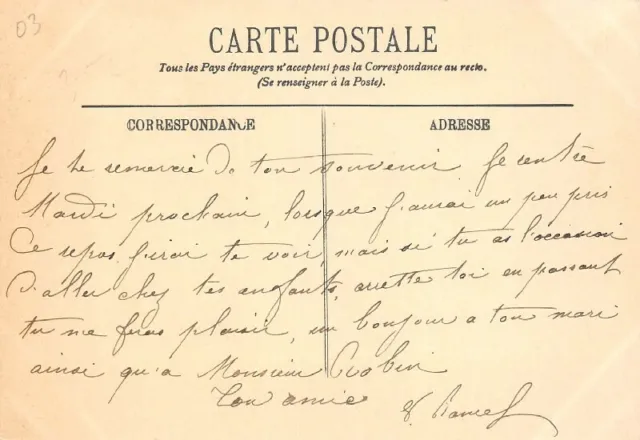 03
CARTE POSTALE
Tous les Pays étrangers n'acceptent pas la Correspondance au recto.
(Se renseigner à la Poste).
CORRESPONDANCE
ADRESSE
Je te remercie de ton souvenir Je rentre
Mardi prochain, lorsque j'aurai un peu pris
Ce repos j'irai te voir, mais si tu as l'occasion
d'aller chez tes enfants, arrette toi en passant
tu me feras plaisir, un bonjour a ton mari
ainsi qu'a Monsieur
Ton amie